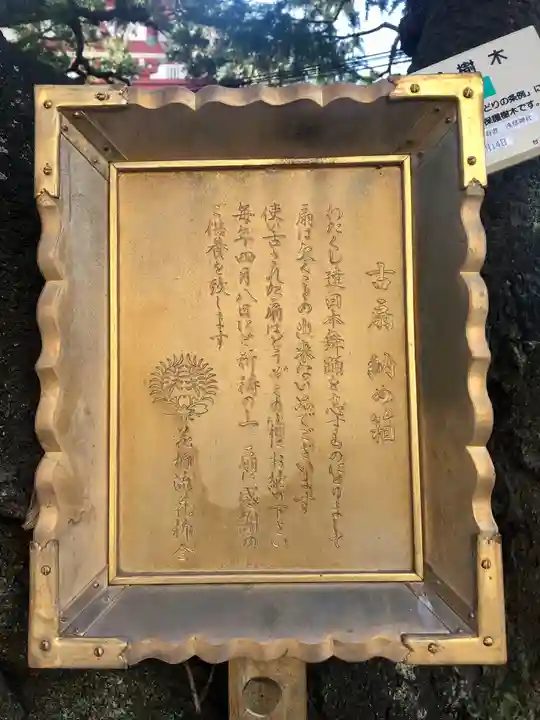 古扇納め箱
わたくし達日本舞踊を志すものにとりまして
扇は欠くことの出来ない品でございます
使い古された扇はどうぞこの箱にお納め下さい
毎年四月八日にご祈祷の上 扇に感謝の
ご供養を致します
花柳流花柳会
樹木
どりの条例」に
保護樹木です。
浅草神社
月14日